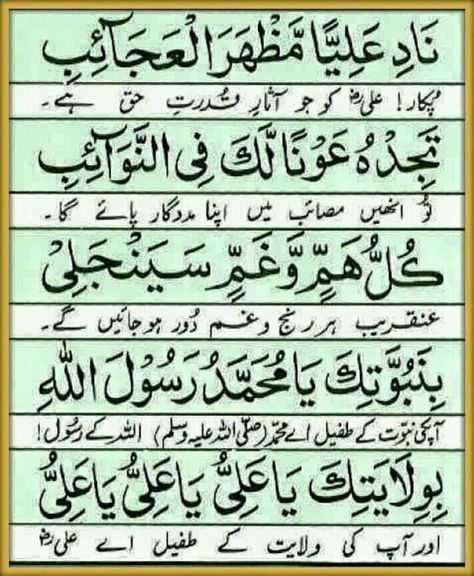 نَادِ عَلِيًّا مَّظْهَرَ الْعَجَآئِبِ
پُکار! علیؓ کو جو آثارِ قُدرتِ حق ہے۔
تَجِدْهُ عَوْنًا لَّكَ فِى النَّوَآئِبِ
تُو انھیں مصائب میں اپنا مددگار پائے گا۔
كُلُّ هَمٍّ وَّغَمٍّ سَيَنْجَلِىْ
عنقریب ہر رنج و غم دُور ہو جائیں گے۔
بِنَبُوَّتِكَ يَا مُحَمَّدُ رَسُوْلَ اللّٰهِ
آپکی نبوت کے طفیل اے محمدؐ (صلّی اللہ علیہ وسلّم) اللہ کے رسول!
بِوِلَايَتِكَ يَا عَلِىُّ يَا عَلِىُّ يَا عَلِىُّ
اور آپ کی ولایت کے طفیل اے علیؓ